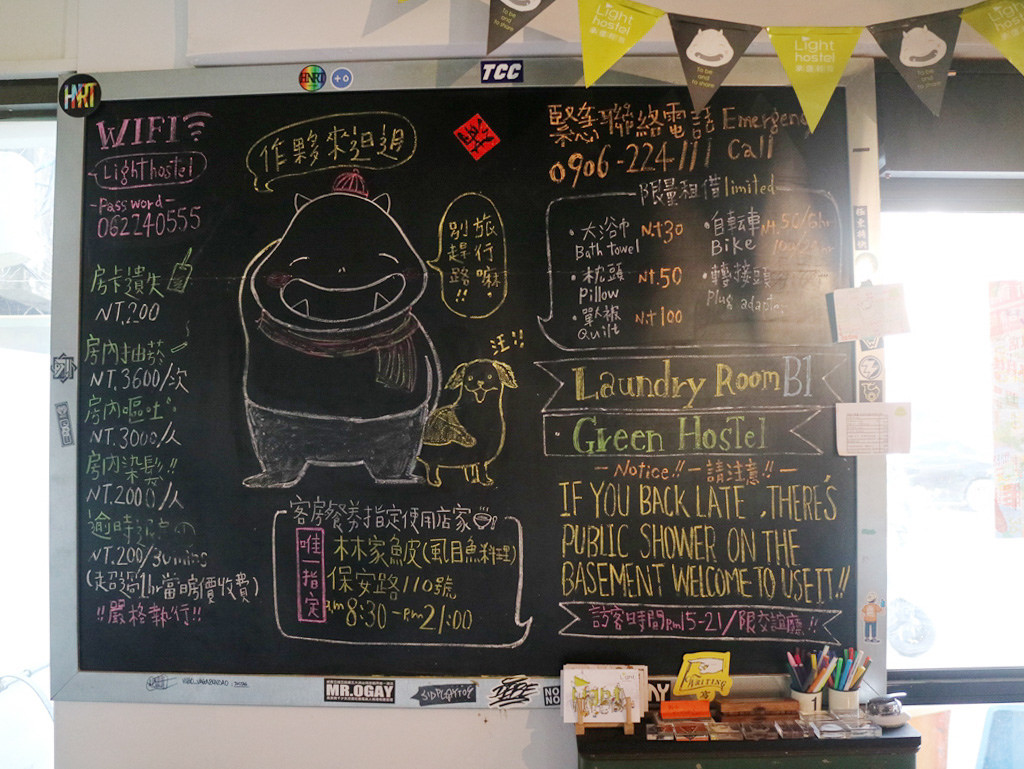 Light hostel
to be and to share
Light hostel
to be and to share
HNRT
HNRT
TCC
WIFI
Light hostel
-Password-
062240555
房卡遺失
NT,200
房內抽菸
NT,3600/次
房內嘔吐
NT.3000/人
房內染髮!!
NT.2000/人
逾時
NT.200/30mins
(超過1hr當日房價收費)
!!嚴格執行!!
作夥來迌迌
別趕路嘛!!
旅行
汪!!
客房餐券指定使用店家
唯一指定
林家魚皮(虱目魚料理)
保安路110號
am 8:30-pm 21:00
緊急聯絡電話 Emergency Call
0906-224111
限量租借limited
·大浴巾
Bath towel
Nt30
·枕頭
Pillow
Nt.50
·單人被
Quilt
Nt100
·自轉車
Bike
·轉接頭
plug adapter
Laundry Room B1
Green Hostel
-Notice!!-請注意!!-
IF YOU BACK LATE ,THERE'S
PUBLIC SHOWER ON THE
BASEMENT WELCOME TO USE IT!!
訪客時間pm15-21/限交誼廳!!
MR.OGAY
WRITING